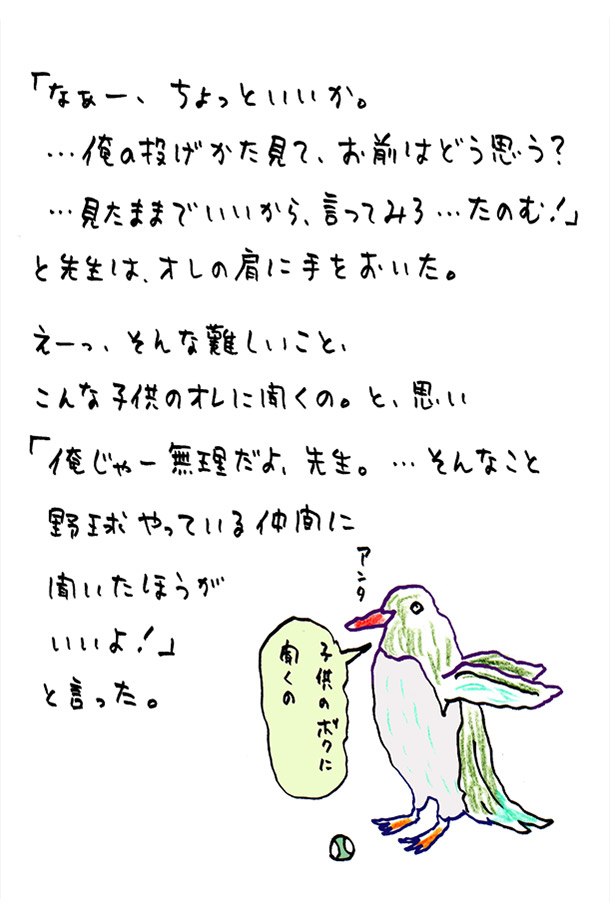 「なぁー、ちょっといいか。
…俺の投げかた見て、お前はどう思う？
…見たままでいいから、言ってみろ…たのむ！」
と先生は、オレの肩に手をおいた。
えーっ、そんな難しいこと、
こんな子供のオレに聞くの。と、思い
「俺じゃー無理だよ、先生。…そんなこと
野球やっている仲間に
聞いたほうが
いいよ！」
と言った。
アンタ
子供のボクに
聞くの